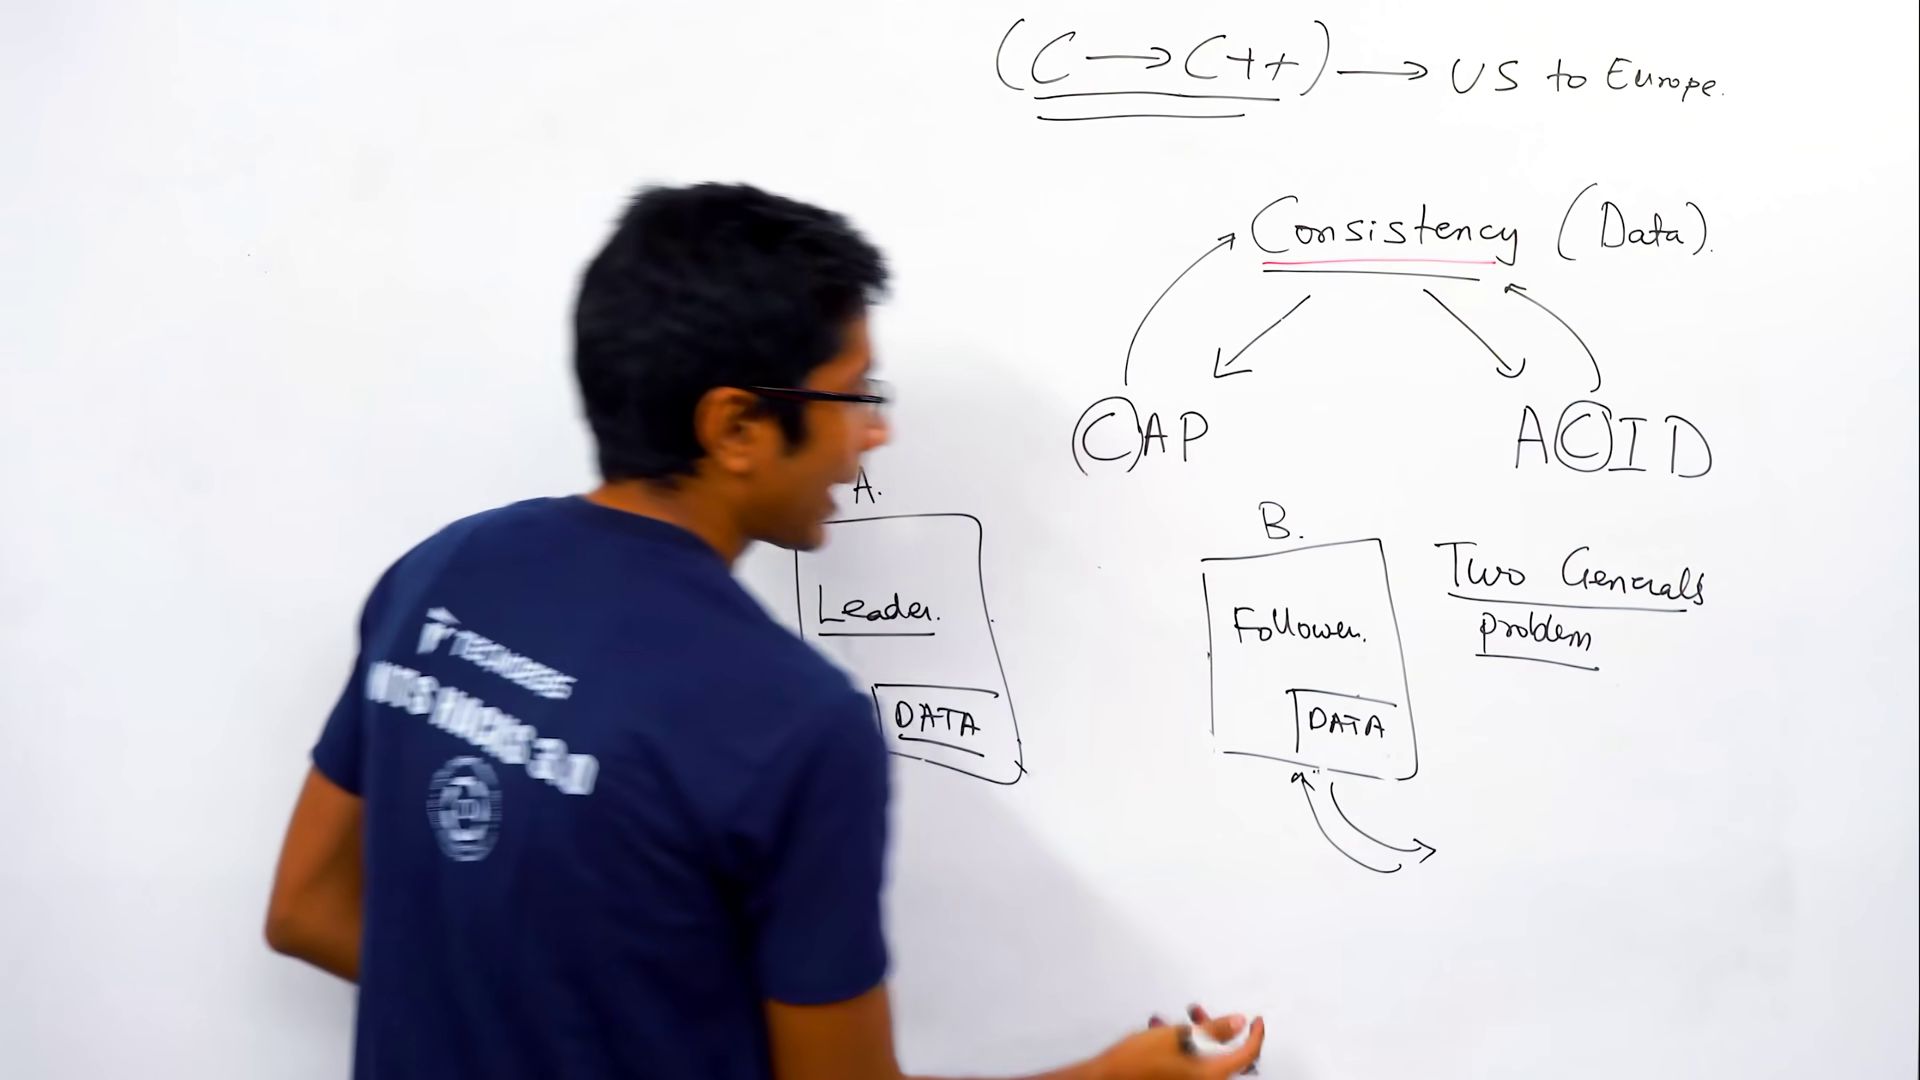 (C → C++) → US to Europe.
Consistency (Data).
CAP
ACID
A.
Leader.
DATA
B.
Follower.
DATA
Two Generals
problem
HACKS 3.0